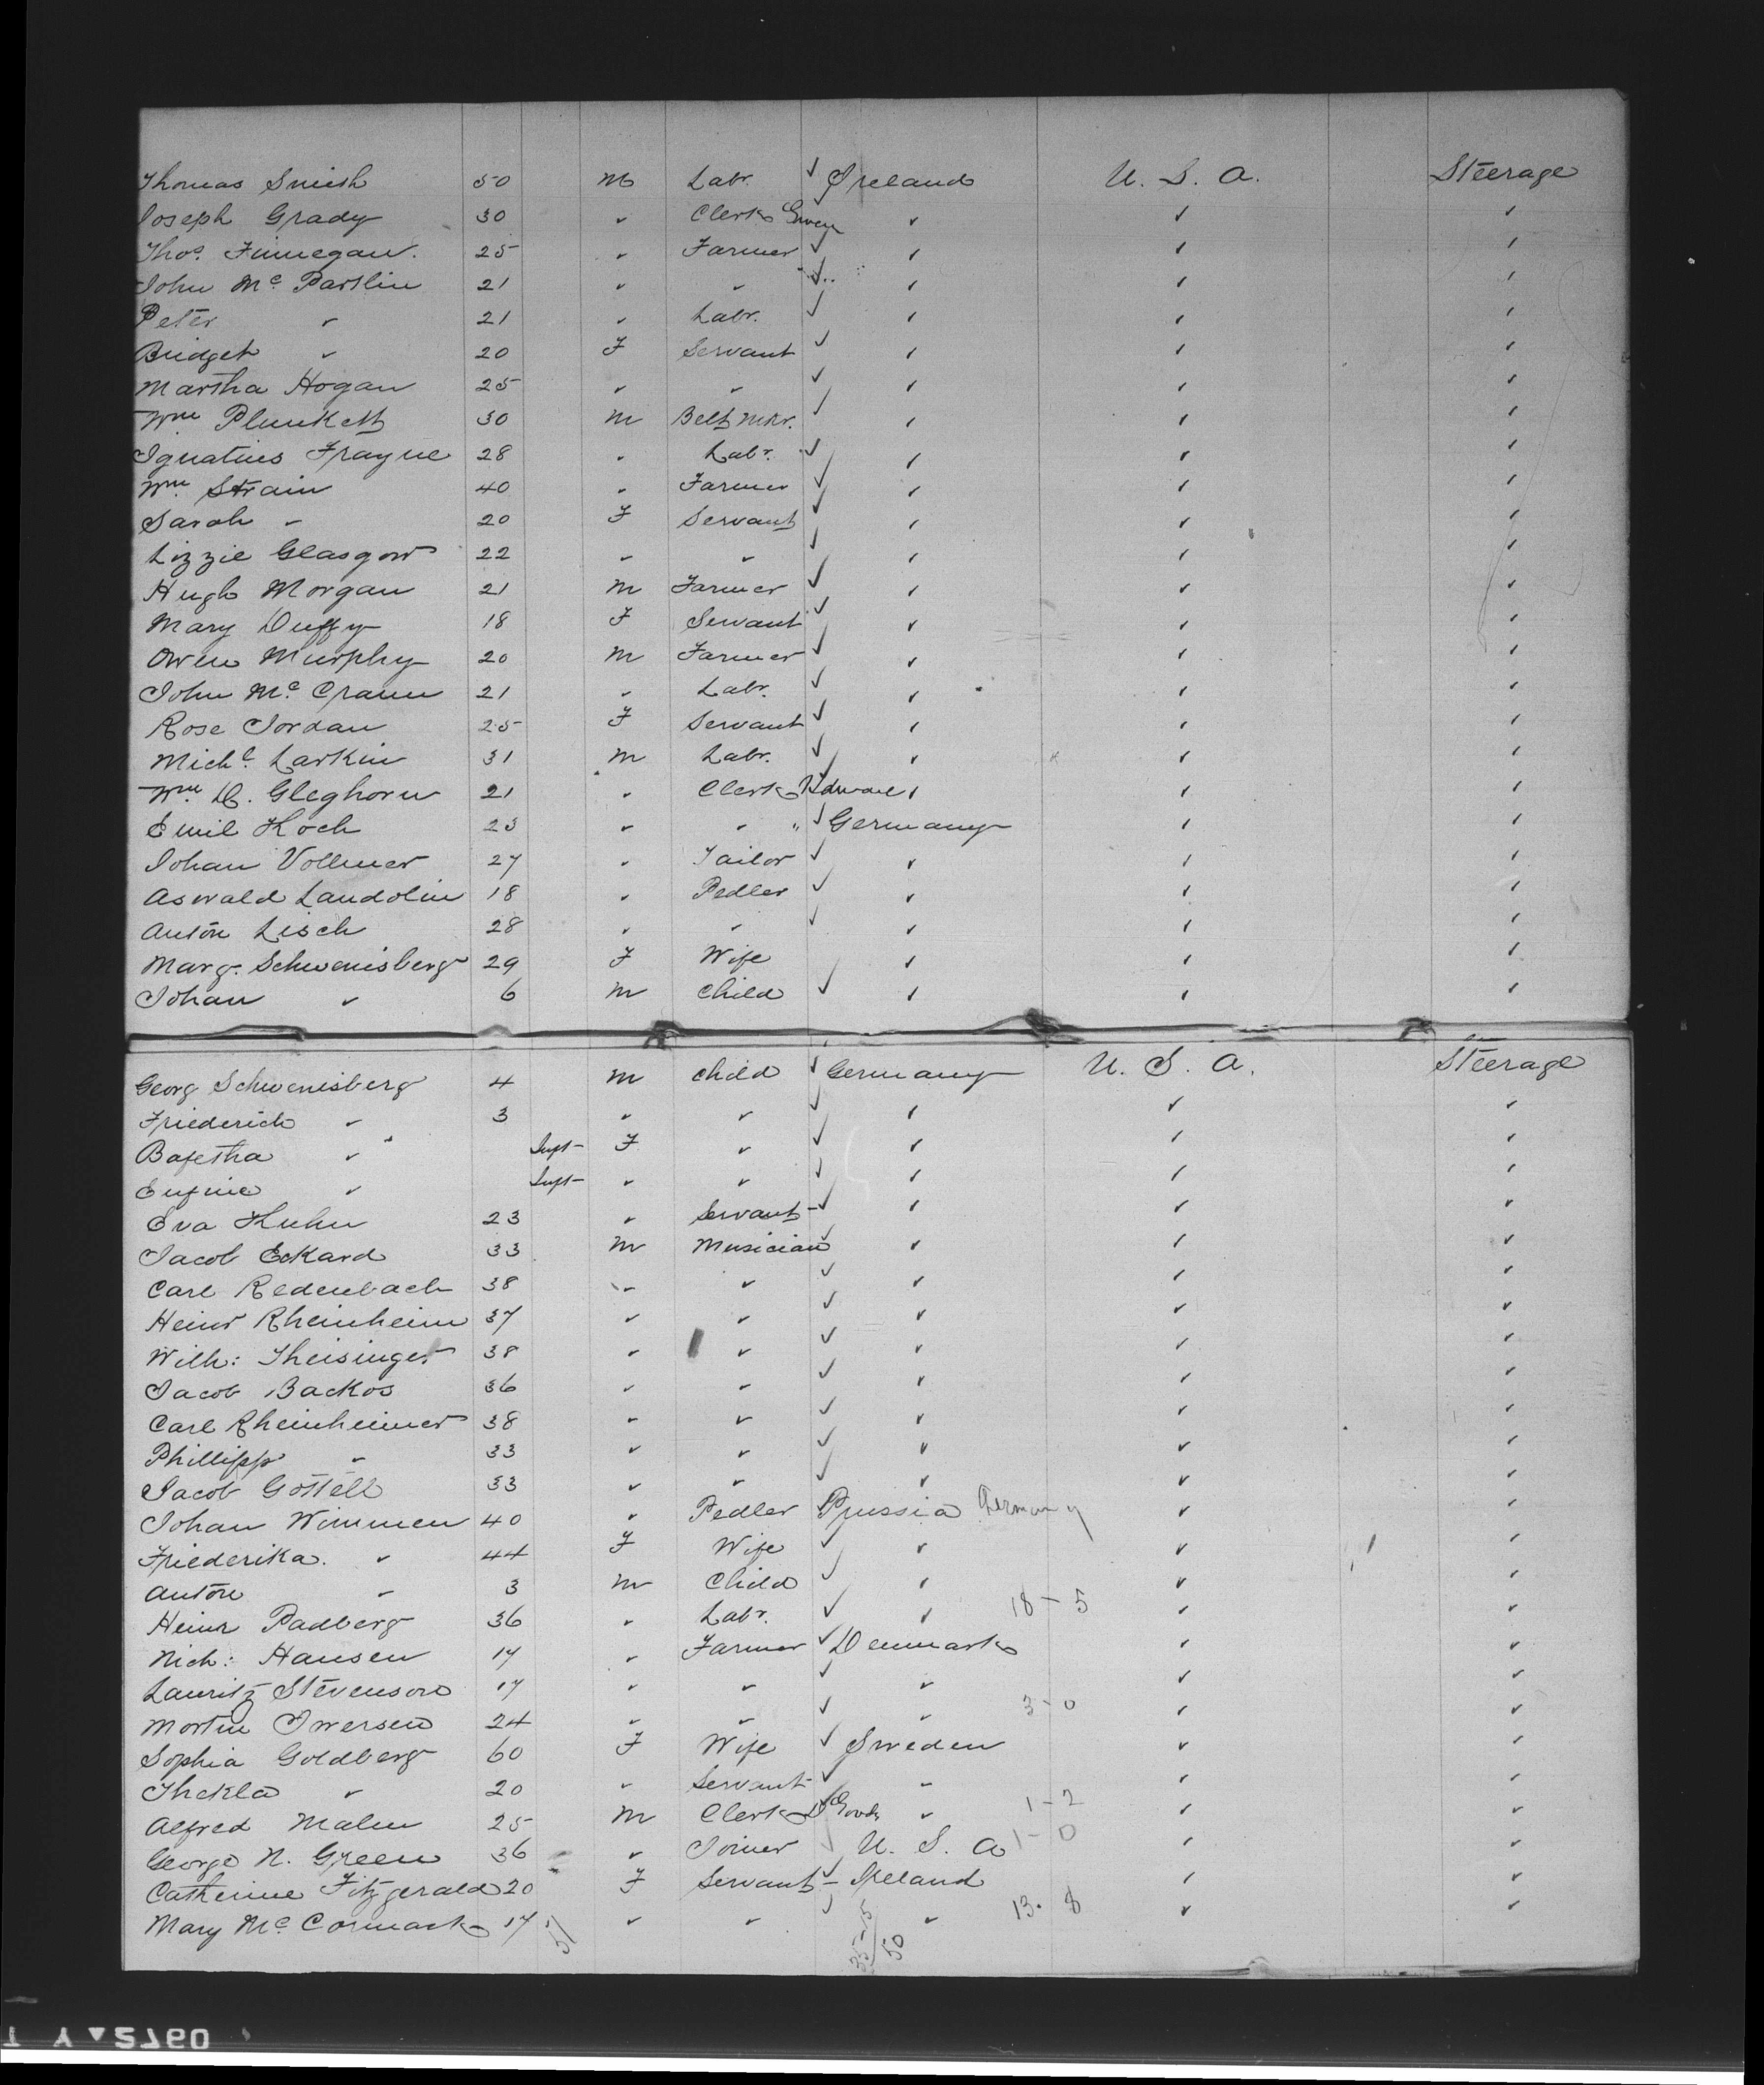 Thomas Smith 50 M Labr. ✓ Ireland U. S. A. Steerage
Joseph Grady 30 " Clerk " " "
Thos. Finnegan. 25 " Farmer ✓ " " "
John Mc Partlin 21 " " ✓ " " "
Peter " 21 " Labr. ✓ " " "
Bridget " 20 F Servant ✓ " " "
Martha Hogan 25 " " ✓ " " "
Wm Plunkett 30 M Belt Mkr. ✓ " " "
Ignatius Frayne 28 " Labr. ✓ " " "
Wm. Strain 40 " Farmer ✓ " " "
Sarah " 20 F Servant ✓ " " "
Lizzie Glasgow 22 " " ✓ " " "
Hugh Morgan 21 M Farmer ✓ " " "
Mary Duffy 18 F Servant ✓ " " "
Owen Murphy 20 M Farmer ✓ " " "
John Mc Crann 21 " Labr. ✓ " " "
Rose Jordan 25 F Servant ✓ " " "
Michl. Larkin 31 M Labr. ✓ " " "
Wm. D. Gleghorn 21 " Clerk Hdware " " "
Emil Koch 23 " " " ✓ Germany " "
Johan Vollmer 27 " Tailor ✓ " " "
Aswald Landolin 18 " Pedler ✓ " " "
Anton Lisch 28 " " ✓ " " "
Marg. Schwenisberg 29 F Wife " " "
Johan " 6 M Child ✓ " " "
Georg Schwenisberg 4 M Child ✓ Germany U. S. A. Steerage
Friederich " 3 " " ✓ " " "
" Inft F " ✓ " " "
" Inft " " ✓ " " "
Eva Huhn 23 " Servant ✓ " " "
Jacob Eckard 33 M Musician ✓ " " "
Carl Redenbach 38 " " ✓ " " "
Heinr Rheinheim 37 " " ✓ " " "
Wilh: Theisinger 38 " " ✓ " " "
Jacob Backos 36 " " ✓ " " "
Carl Rheinheimer 38 " " ✓ " " "
Phillipp " 33 " " ✓ " " "
Jacob Gottell 33 " " ✓ " " "
Johan Wimmen 40 " Pedler Prussia Germany " "
Friederika. " 44 F Wife ✓ " " "
Anton " 3 M Child ✓ " " "
Heinr Padberg 36 " Labr. ✓ " 18 - 5 " "
Nich: Hansen 17 " Farmer ✓ Denmark " "
Lauritz Stevenson 17 " " ✓ " " "
Mortin Iwersen 24 " " ✓ " 3 - 0 " "
Sophia Goldberg 60 F Wife ✓ Sweden " "
Thekla " 20 " Servant ✓ " " "
Alfred Malm 25 M Clerk D Goods " 1 - 2 " "
George N. Green 36 " Joiner ✓ U. S. A 1 - 0 " "
Catherine Fitzgerald 20 F Servant ✓ Ireland " "
Mary Mc Cormack 17 " " ✓ " 13 - 8 " "
51
35-15
50